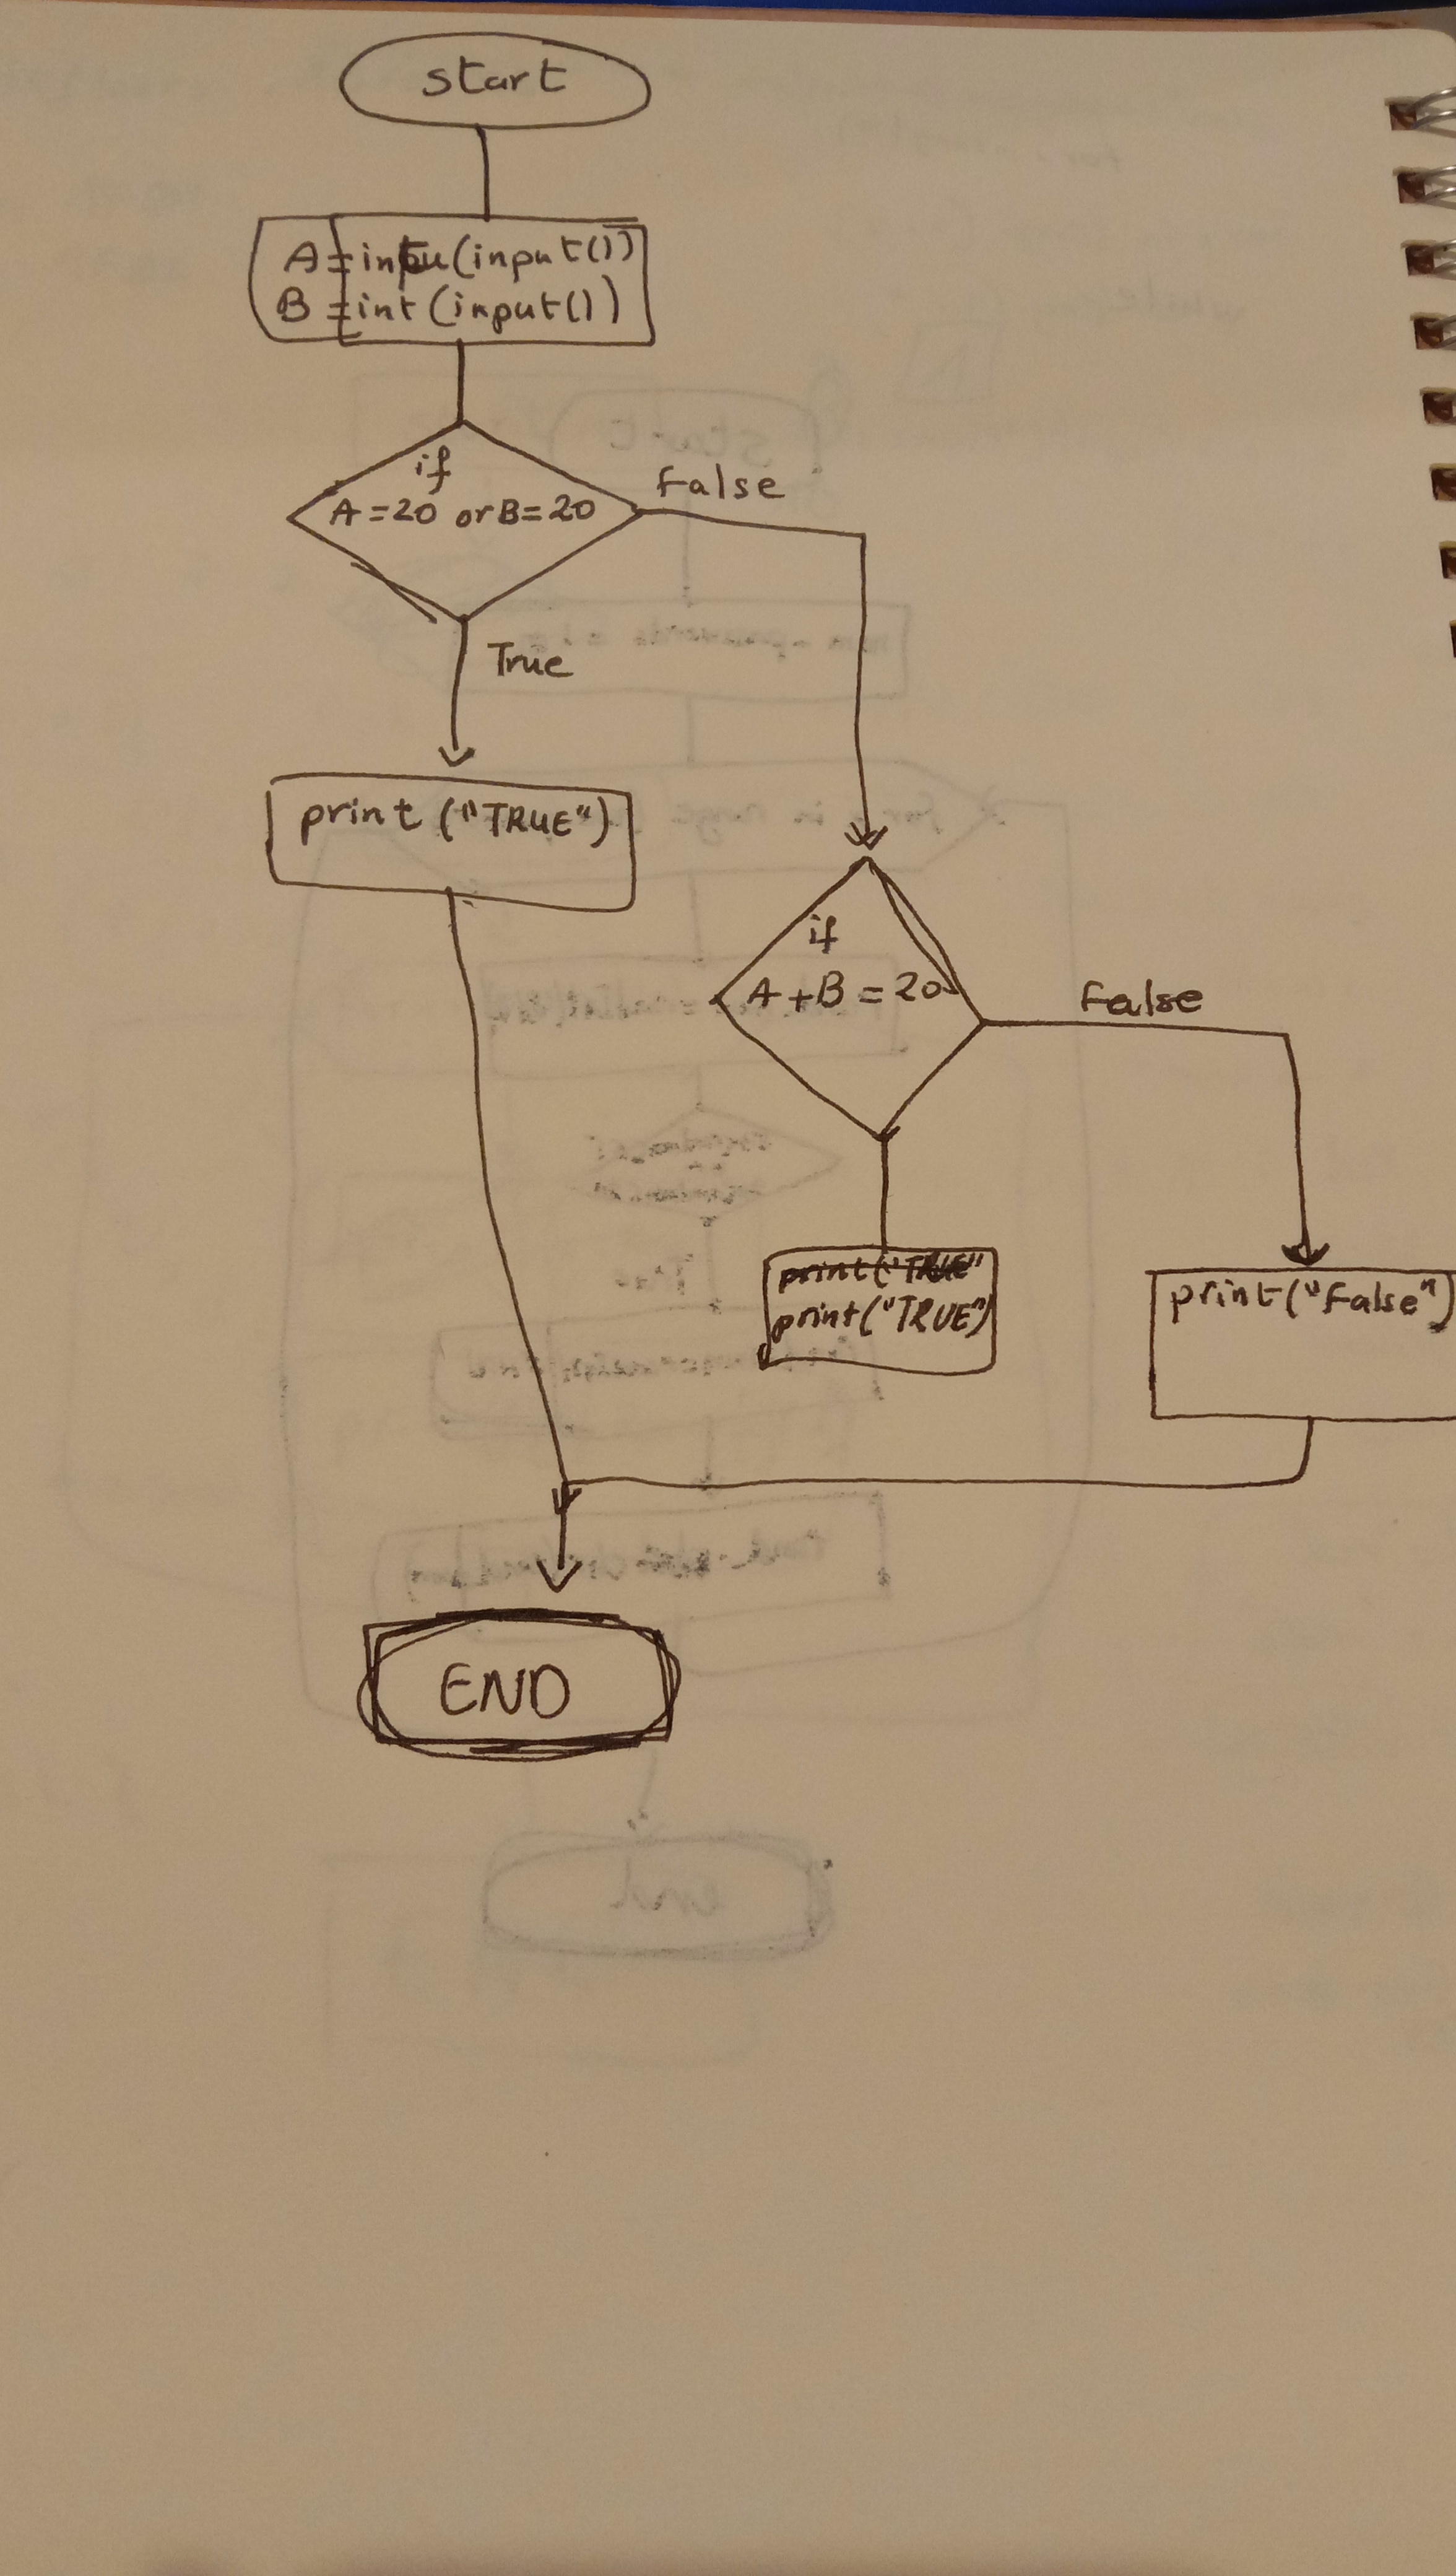 start
A=intpu(input())
B=int(input())
if
A=20 or B=20
False
True
print ("TRUE")
if
A+B=20
False
print("TRUE"
print("TRUE")
print("False")
END
start
end